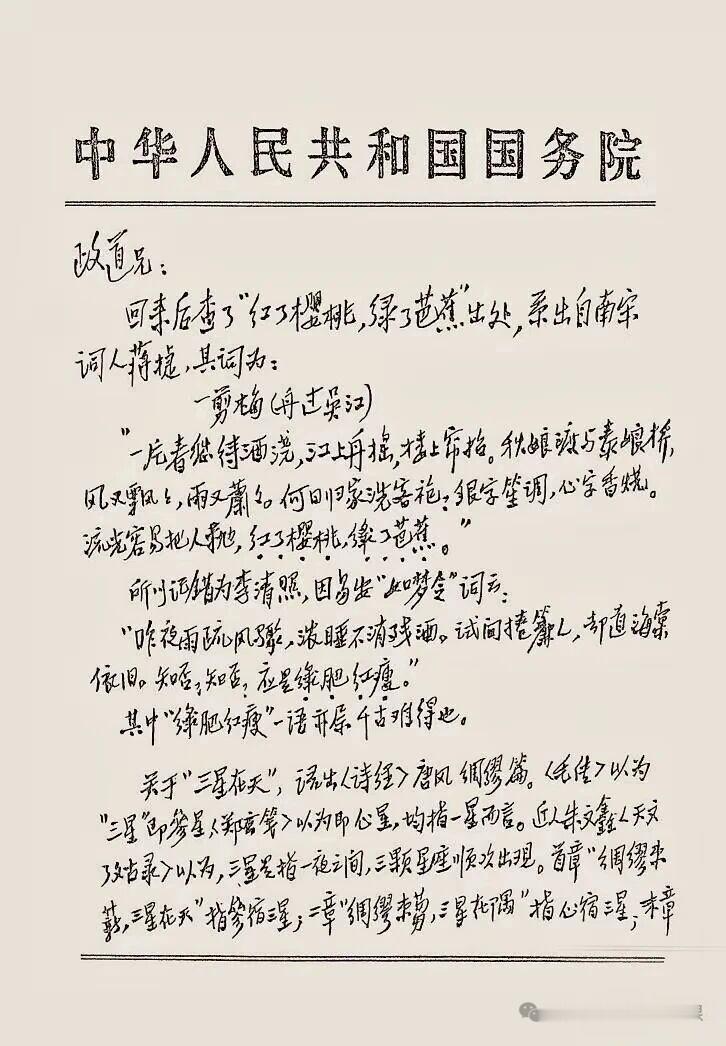 中华人民共和国国务院
政道兄：
回来后查了“红了樱桃，绿了芭蕉”出处，系出自南宋
词人蒋捷，其词为：
一剪梅（舟过吴江）
“一片春愁待酒浇，江上舟摇，楼上帘招。秋娘渡与泰娘桥，
风又飘飘，雨又萧萧。何日归家洗客袍？银字笙调，心字香烧。
流光容易把人抛，红了樱桃，绿了芭蕉。”
所以记错为李清照，因易安“如梦令”词云：
“昨夜雨疏风骤，浓睡不消残酒。试问捲簾人，却道海棠
依旧。知否？知否？应是绿肥红瘦。”
其中“绿肥红瘦”一语亦属千古难得也。
关于“三星在天”，语出《诗经》唐风 绸缪篇。《毛传》以为
“三星”即参星，《郑玄笺》以为即心星，均指一星而言。近人朱文鑫《天文
考古录》以为，三星是指一夜之间，三颗星座顺次出现。首章“绸缪束
薪，三星在天”指参宿三星；二章“绸缪束刍，三星在隅”指心宿三星；末章